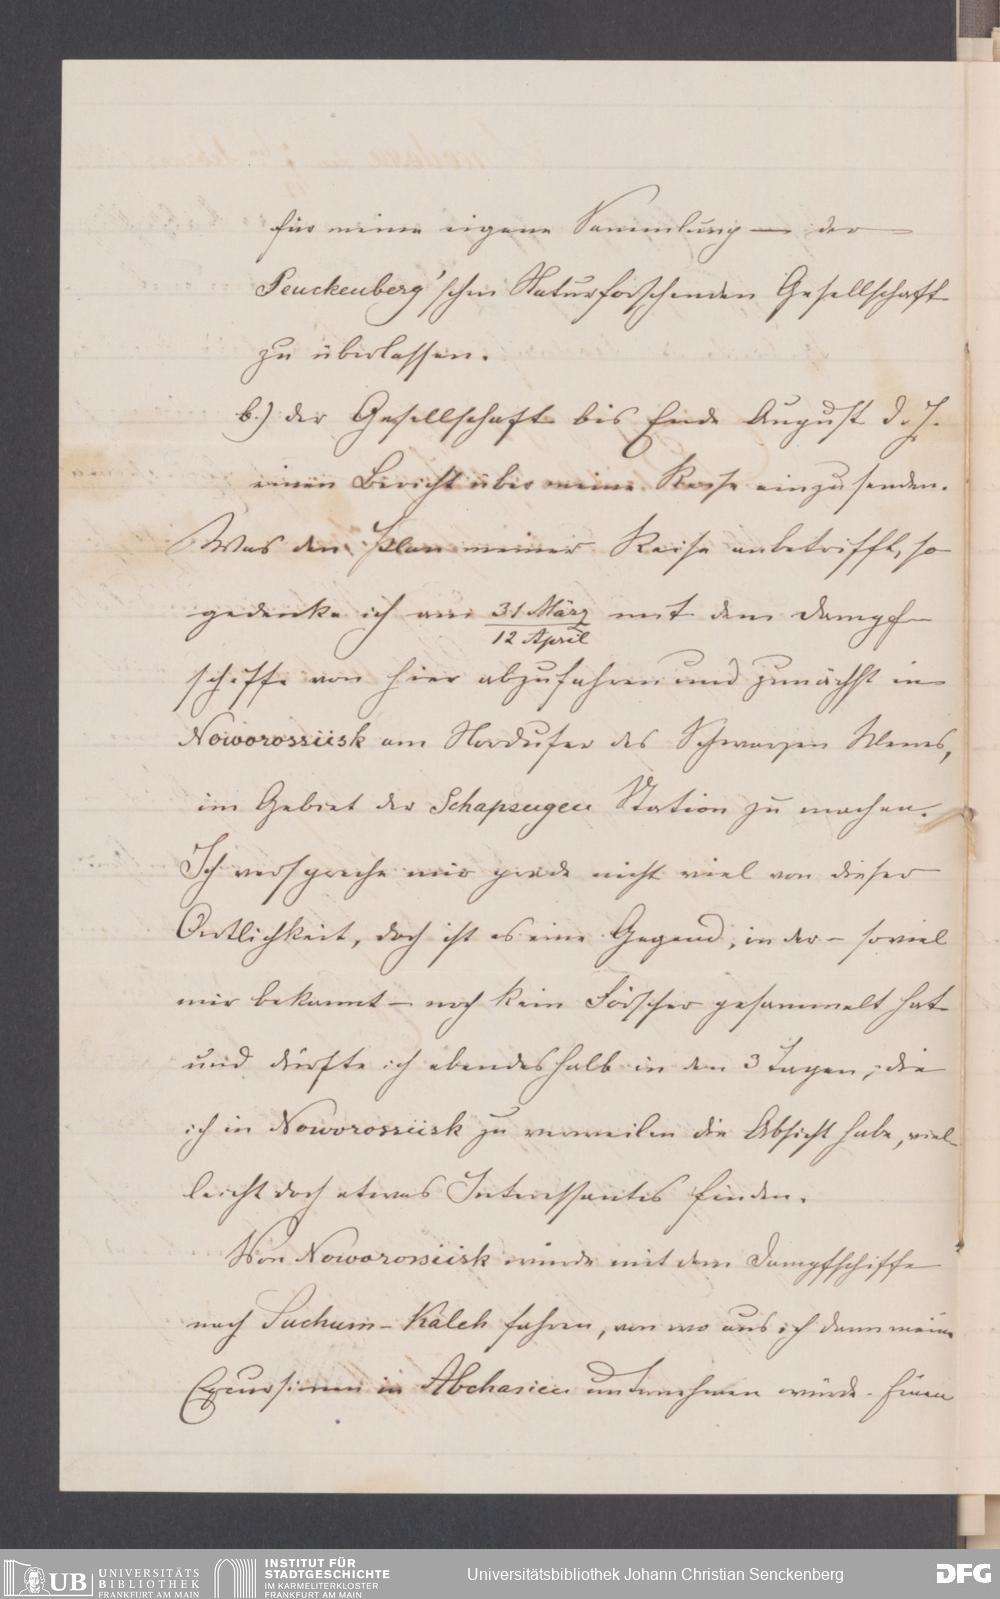 für meine eigene Sammlung — der
Senckenberg'schen Naturforschenden Gesellschaft
zu überlassen.
b.) der Gesellschaft bis Ende August d. J.
einen Bericht über meine Reise einzusenden.
Was den Plan meiner Reise anbetrifft, so
gedenke ich am 31 März/12 April mit dem Dampf-
schiffe von hier abzufahren und zunächst in
Noworossiisk am Nordufer des Schwarzen Meeres,
im Gebiet der Schapsugen Station zu machen.
Ich verspreche mir grade nicht viel von dieser
Oertlichkeit, doch ist es eine Gegend, in der – soviel
mir bekannt – noch kein Forscher gesammelt hat
und dürfte ich ebendeshalb in den 3 Tagen, die
ich in Noworossiisk zu verweilen die Absicht habe, viel-
leicht doch etwas Interessantes finden.
Von Noworossiisk würde mit dem Dampfschiffe
nach Suchum-Kaleh fahren, von wo aus ich dann meine
Excursionen in Abchasien unternehmen würde. Einen
UB UNIVERSITÄTS
BIBLIOTHEK
FRANKFURT AM MAIN
INSTITUT FÜR
STADTGESCHICHTE
IM KARMELITERKLOSTER
FRANKFURT AM MAIN
Universitätsbibliothek Johann Christian Senckenberg
DFG